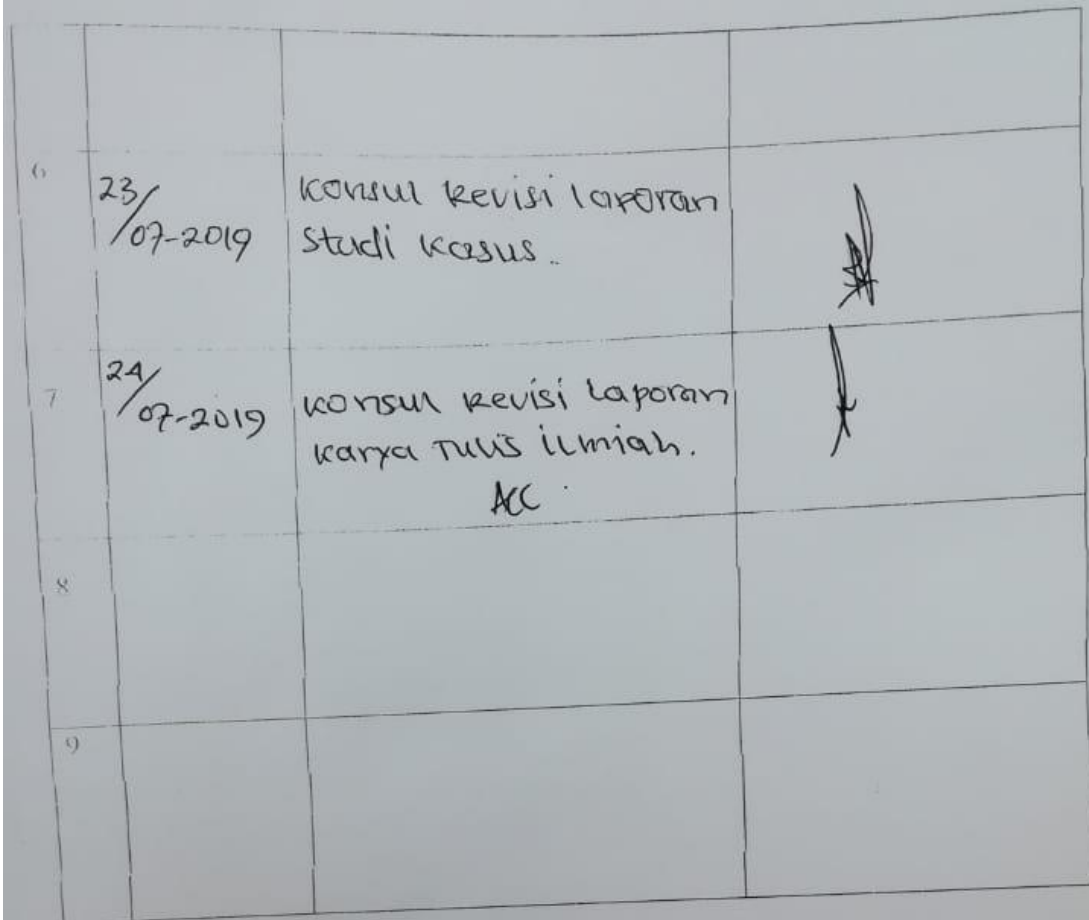 6
23/07-2019
Konsul Revisi laporan
Studi Kasus.
7
24/07-2019
Konsul Revisi Laporan
Karya Tulis ilmiah.
ACC
8
9